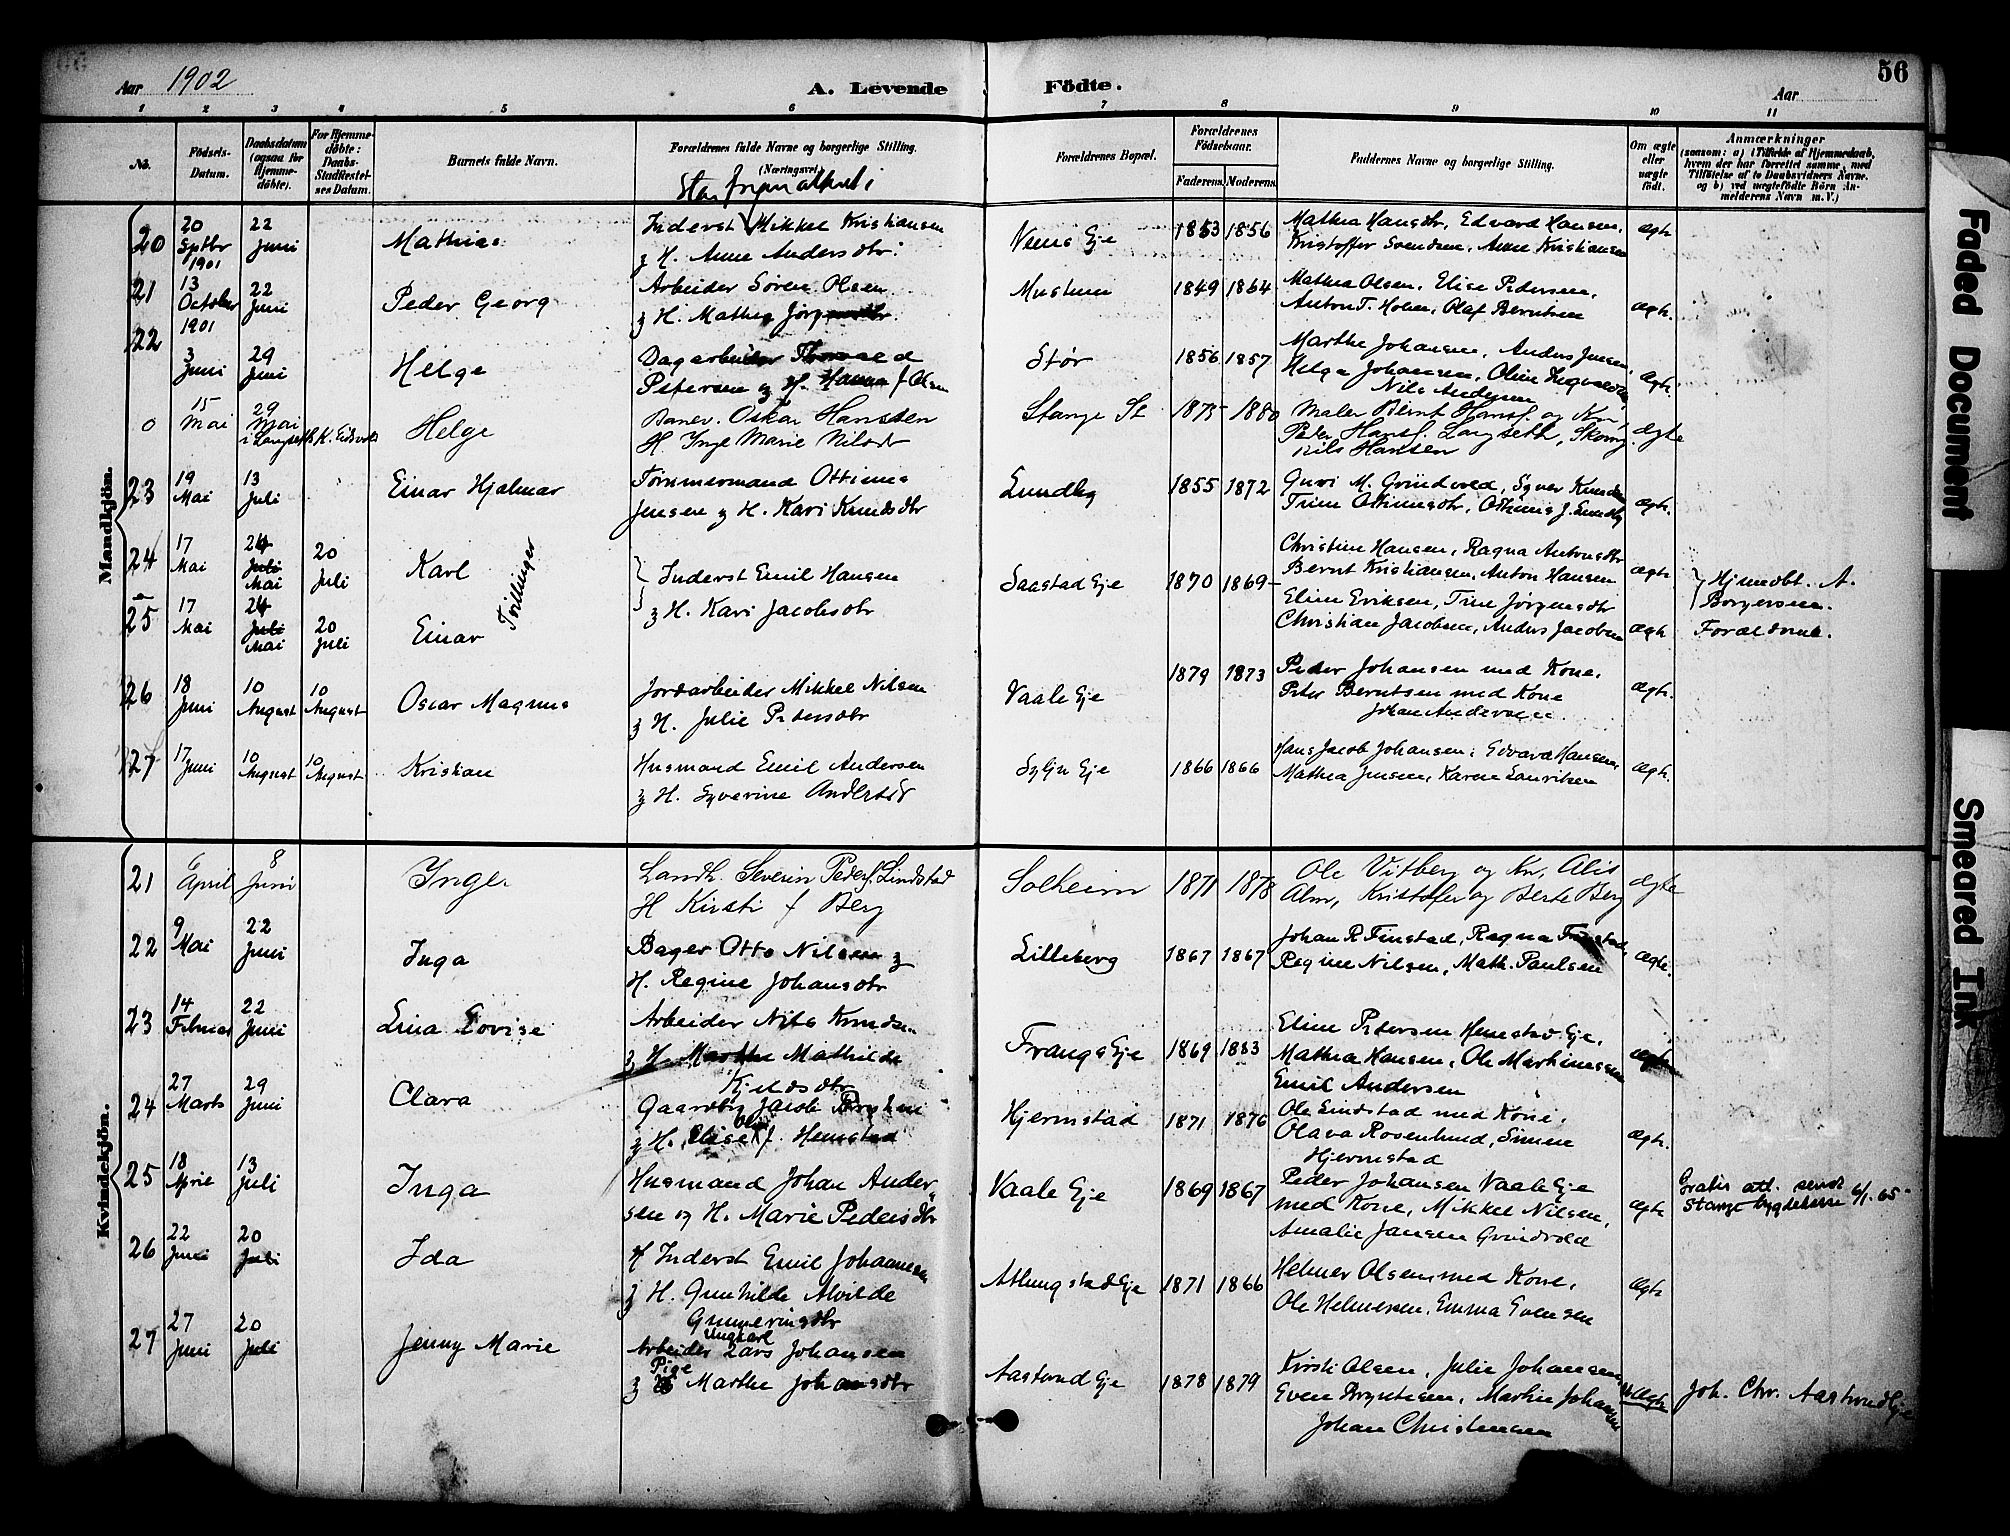 56
Aar 1902
A. Levende Födte.
Aar
1 2 3 4 5 6 7 8 9 10 11
No.
Födsels-Datum.
Daabsdatum (ogsaa for Hjemmedöbte).
For Hjemmedöbte: Daabs-Stadfestelses Datum.
Barnets fulde Navn.
Forældrenes fulde Navne og borgerlige Stilling.
(Næringsvei)
Forældrenes Bopæl.
Forældrenes Födselsaar.
Faderens. Moderens.
Faddernes Navne og borgerlige Stilling.
Om ægte eller uægte födt.
Anmærkninger
(saasom: a) i Tilfælde af Hjemmedaab, hvem der har forrettet samme, med Tilföielse af to Daabsvidners Navne, og b) ved uægtefödte Börn Anmelderens Navn m. V.)
Mandkjön.
20
20 Sptbr 1901
22 Juni
Mathias
Inderst Mikkel Kristiansen
og H. Anne Andersdtr.
Eje
1853 1856
Mathea Hansdtr, Edvard Hansen,
Kristoffer Svendsen, Anne Kristiansen
ægte
21
13 October 1901
22 Juni
Peder Georg
Arbeider Sören Olsen
og H. Mathea Jörgensdtr.
1849 1864
Mathea Olsen, Elise Pedersen,
Anton T. Holen, Olaf Berntsen
ægte.
22
3 Juni
29 Juni
Helge
Dagarbeider
Petersen og H. Hanna f. Olsen
Stör
1856 1857
Marthe Johansen, Anders Jensen,
Helga Johansen, Oline
Nils Andersen
ægte.
0
15 Mai
29 Mai
Helge
Banev. Oskar Hanssen
H. Inge Marie Nilsdr
Stange St
1875 1880
Maler Bernt Hansf. og Kon,
Peder Hansf. Langseth,
Nils Hansen
ægte
23
19 Mai
13 Juli
Einar Hjalmar
Tömmermand Ottinus
Jensen og H. Kari Knudsdtr
Lundby
1855 1872
Guri M. Grindvold, Syver Knudsen
Trine Ottinusdtr, Othinus J. Lundby
ægte.
24
17 Mai
24 Juli Mai
20 Juli
Karl
Tvillinger
Inderst Emil Hansen
og H. Kari Jacobsdtr
Saastad Eje
1870 1869
Christine Hansen, Ragna Antonsdtr
Bernt Kristiansen, Anton Hansen
ægte
Hjemdbt. A.
Borgersen.
25
17 Mai
24 Juli Mai
20 Juli
Einar
Eline Eriksen, Trine Jörgensdtr
Christian Jacobsen, Anders Jacobsen
ægte
Forældrene.
26
18 Juni
10 August
10 August
Oscar Magnus
Jordarbeider Mikkel Nilsen
og H. Julie Petersdtr
Vaale Eje
1879 1873
Peder Johansen med Kone.
Peter Berntsen med Kone
Johan Andersen.
ægte.
27
17 Juni
10 August
10 August
Kristian
Husmand Emil Andersen
og H. Syverine Andersdr
Eje
1866 1866
Hans Jacob Johansen, Edvard Hansen,
Mathea Jensen, Karen Lauritsen
ægte.
Kvindekjön.
21
6 April
8 Juni
Inge.
Landh. Severin Peders. Lindstad
H Kirsti f Berg
Solheim
1871 1878
Ole Vitberg og Kn, Alis
Alm, Kristofer og Berte Berg
ægte
22
9 Mai
22 Juni
Inga
Bager Otto Nilsen og
H. Regine Johansdtr
Lilleberg
1867 1867
Johan R Finstad, Ragna Finstad,
Regine Nilsen, Math. Paulsen
ægte.
23
14 Februar
22 Juni
Lina Lovise
Arbeider Nils Knudsen
og H. Marthe Mathilde
Kjeldsdtr
Frang Eje
1869 1883
Eline Petersen Hemstad Eje,
Mathea Hansen, Ole Martinussen
Emil Andersen
ægte
24
27 Marts
29 Juni
Clara
Gaardbr Jacob
og H. Elise Ols f. Hemstad
Hjermstad
1871 1876
Ole Lindstad med Kone,
Olava Rosenlund, Simen
Hjermstad
ægte.
25
18 April
13 Juli
Inga
Husmand Johan Ander-
sen og H. Marie Pedersdtr
Vaale Eje
1869 1867
Peder Johansen Vaale Eje
med Kone, Mikkel Nilsen,
Amalie Jansen Grindvold
ægte
Gratis att. sendt
Stange trygdekasse 6/1-65
26
22 Juni
20 Juli
Ida
Inderst Emil Johannesen
og H. Gunhilde Alvilde
Gunneriusdtr
Atlungstad Eje
1871 1866
Helmer Olsen med Kone,
Ole Helmersen, Emma Evensen
ægte
27
27 Juni
20 Juli
Jenny Marie
Ungkarl
Arbeider Lars Johansen
Pige
og Marthe Johansdtr
Aastrud Eje
1878 1879
Kirsti Olsen, Julie Johansen,
Even Bryntesen, Martin Johansen
Johan Christensen
uægte
Joh. Chr. Aastrud Eje
Faded Document
Smeared Ink